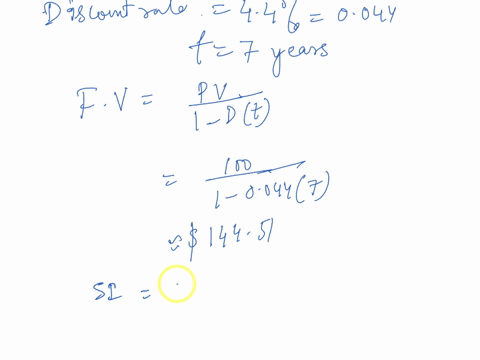 Discount rate = 4.4% = 0.044
t = 7 years
F.V = PV / 1-D(t)
= 100 / 1-0.044(7)
≈ $144.51
SI =